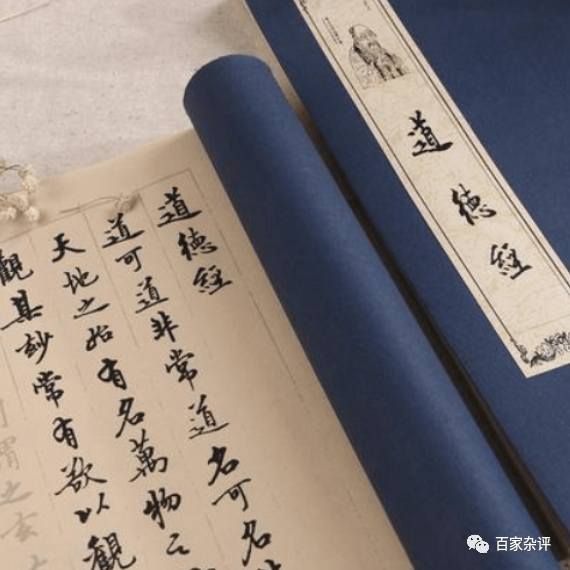 道德經
道德經
道可道非常道名可名
天地之始有名萬物之
觀其妙常有欲以觀
謂之玄
百家杂评